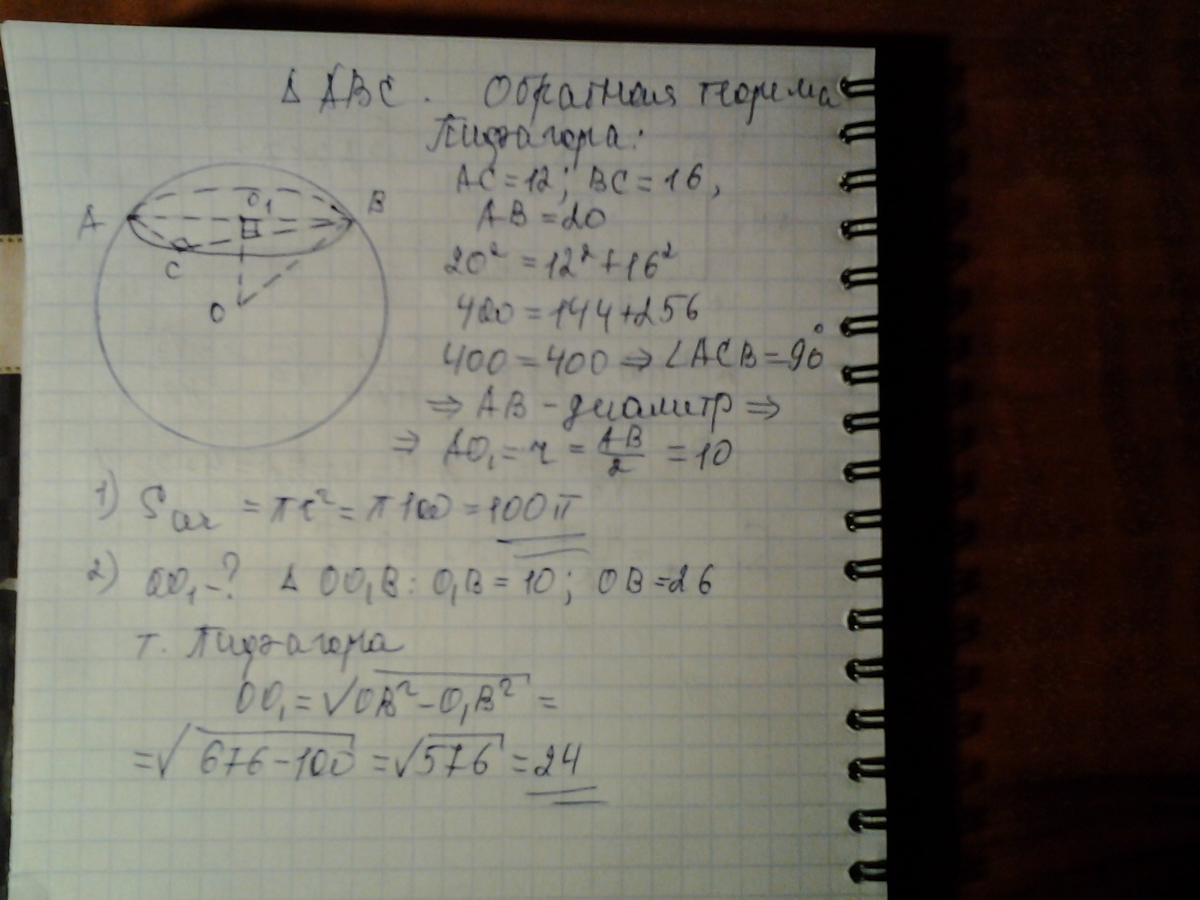 Δ ABC. Обратная теорема
Пифагора:
AC = 12; BC = 16,
AB = 20
20² = 12² + 16²
400 = 144 + 256
400 = 400 ⇒ ∠ACB = 90°
⇒ AB - диаметр ⇒
⇒ AO₁ = r = AB/2 = 10
A
B
C
O₁
O
1) Sсеч = πr² = π100 = 100π
2) OO₁ - ? Δ OO₁B: O₁B = 10; OB = 26
т. Пифагора
OO₁ = √OB² - O₁B² =
= √676 - 100 = √576 = 24